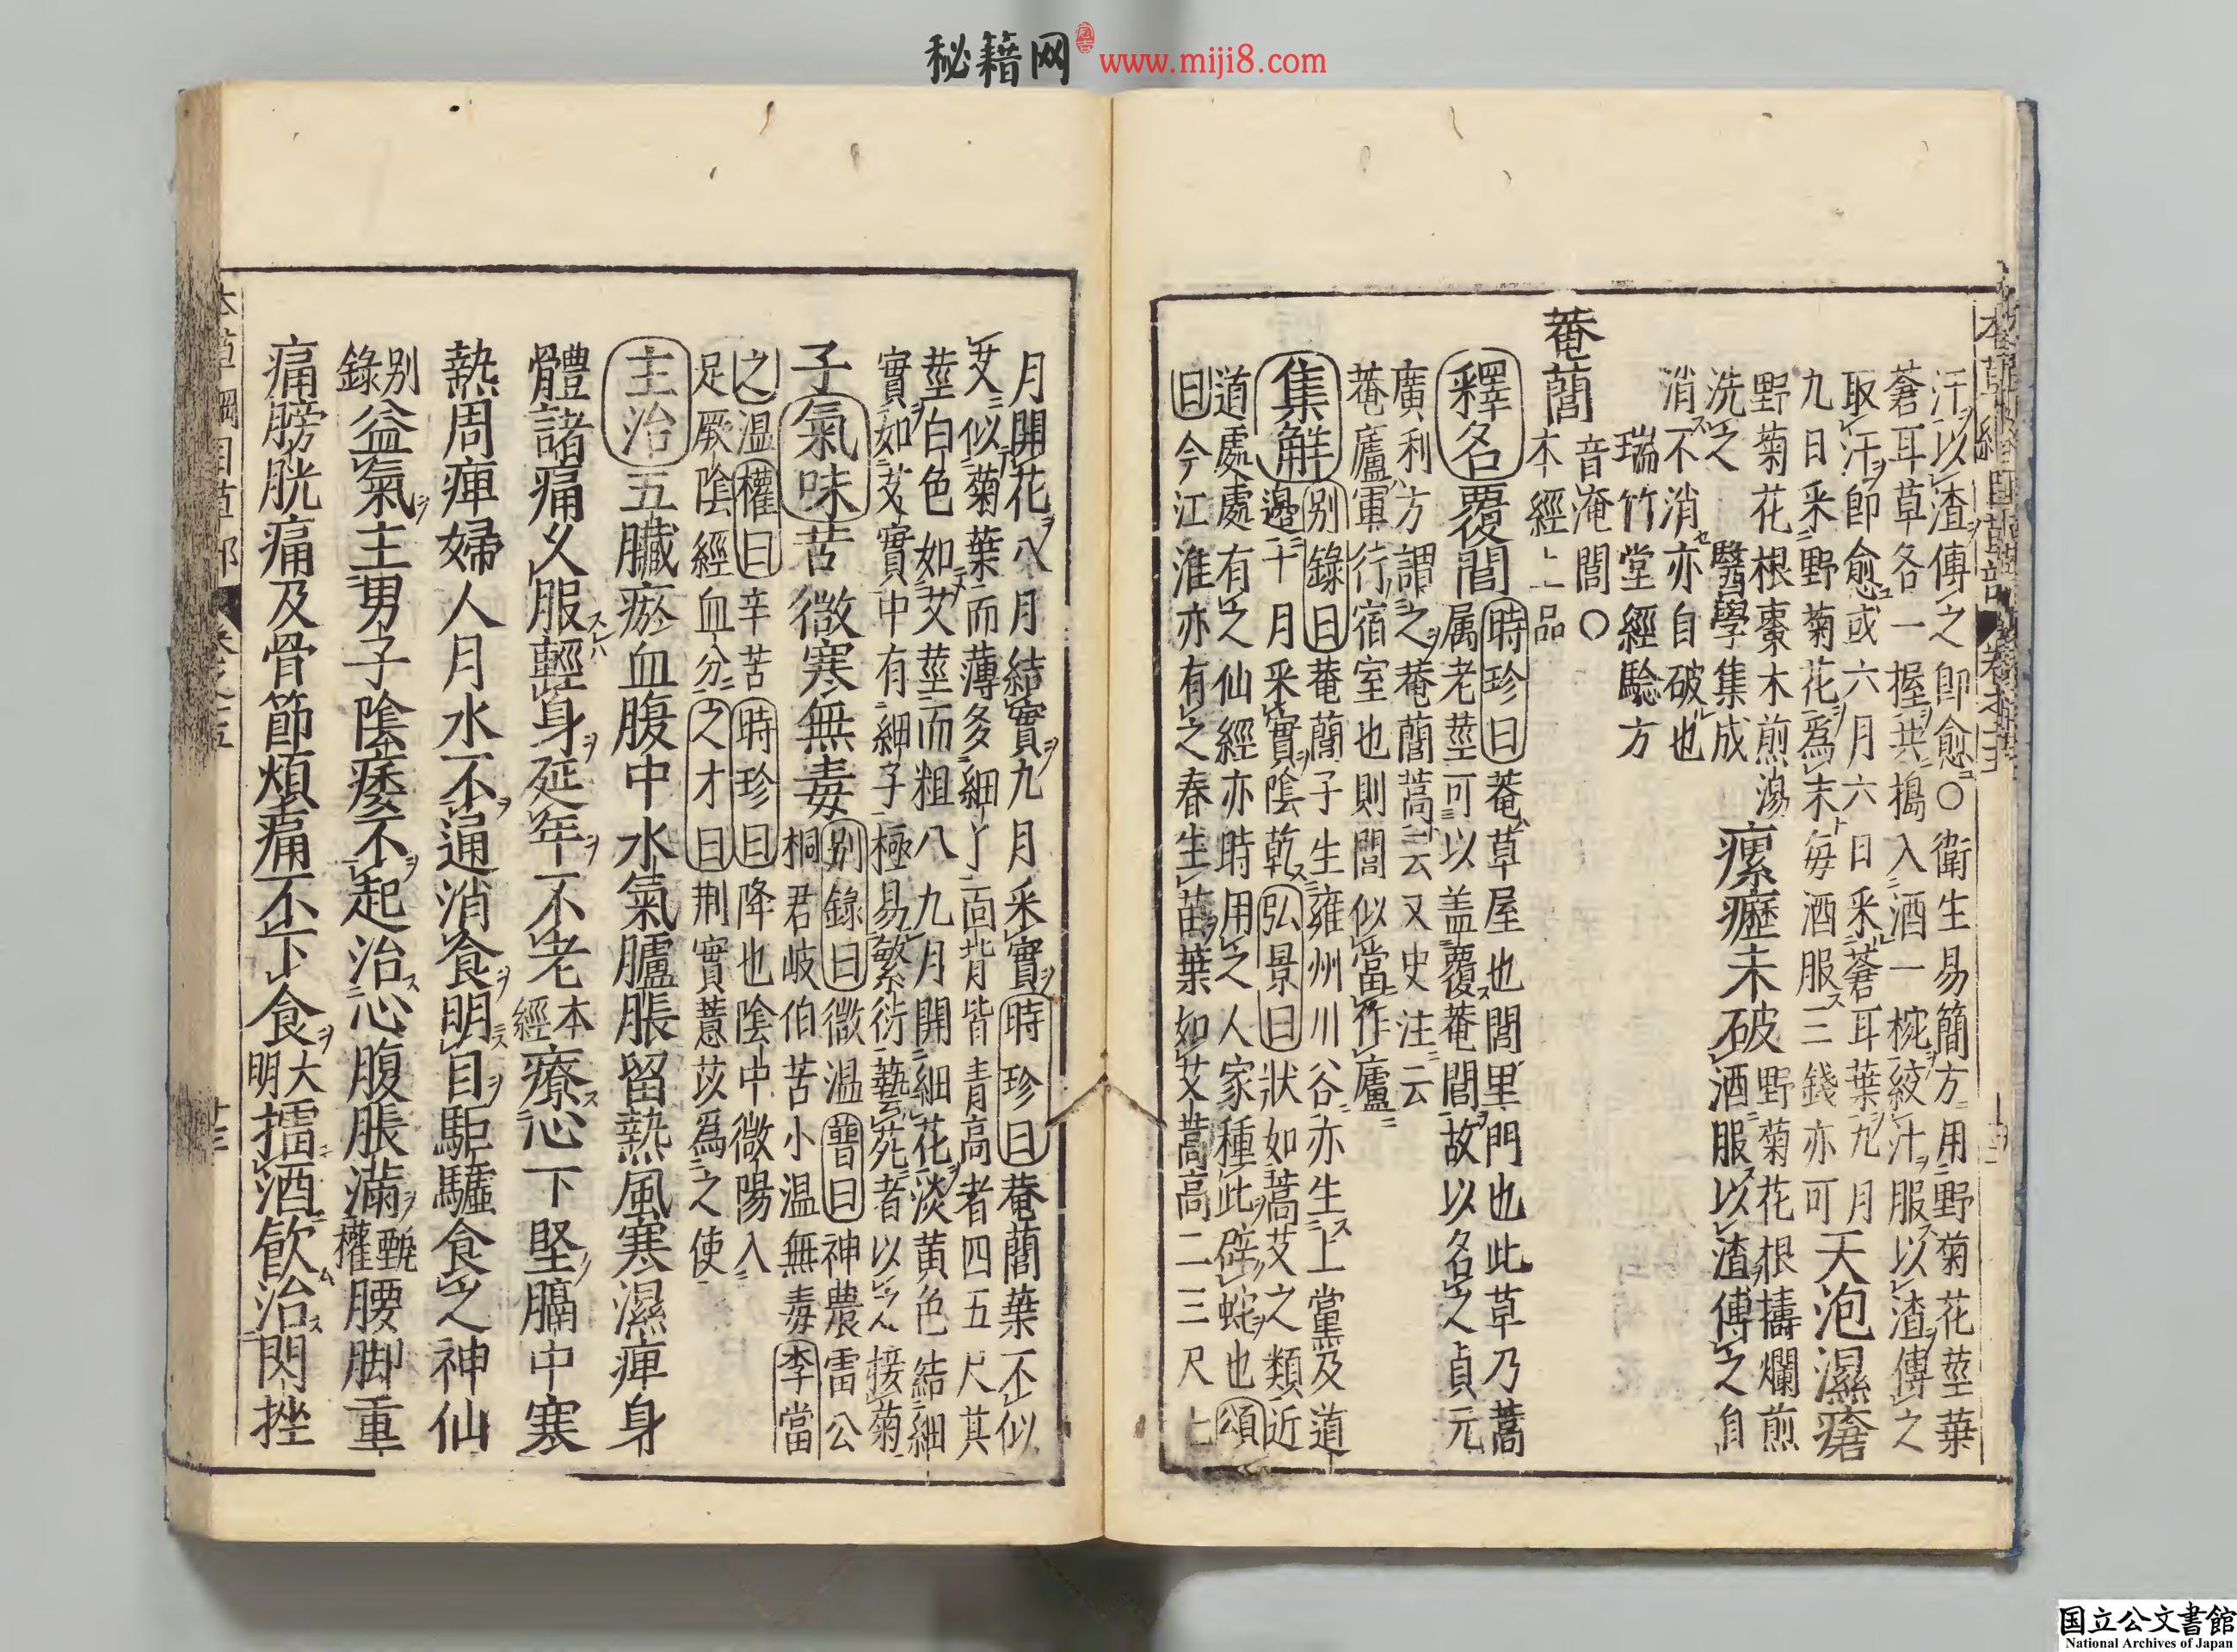 秘籍网 www.miji8.com
汗以渣傅之即愈〇衛生易簡方用野菊花莖葉
蒼耳草各一握共搗入酒一椀絞汁服以渣傅之
取汗即愈或六月六日采蒼耳葉九月
九日采野菊花爲末每酒服三錢亦可
天泡濕瘡
野菊花根棗木煎湯
洗之
醫學集成
瘰癧未破
野菊花根擣爛煎
酒服以渣傅之自
消不消亦自破也
瑞竹堂經驗方
菴䕡
音淹閭〇
本經上品
釋名
覆閭
時珍曰菴草屋也閭里門也此草乃蒿
属老莖可以盖覆菴閭故以名之貞元
廣利方謂之菴䕡蒿云又史注云
菴廬軍行宿室也則閭似當作廬
集解
别錄曰菴䕡子生雍州川谷亦生上黨及道
邊十月采實陰乾弘景曰狀如蒿艾之類近
道處處有之仙經亦時用之人家種此辟蛇也頌
曰今江淮亦有之春生苗葉如艾蒿高二三尺七
月開花八月結實九月采實時珍曰菴䕡葉不似
艾似菊葉而薄多細丫面背皆青高者四五尺其
莖白色如艾莖而粗八九月開細花淡黄色結細
實如艾實中有細子極易繁衍藝苑者以之接菊
子
氣味
苦微寒無毒
别錄曰微温普曰神農雷公
桐君岐伯苦小温無毒李當
之温權曰辛苦時珍曰降也陰中微陽入
足厥陰經血分之才曰荆實薏苡爲之使
主治
五臟瘀血腹中水氣臚脹留熱風寒濕痺身
體諸痛久服輕身延年不老本經療心下堅膈中寒
熱周痺婦人月水不通消食明目駏驉食之神仙
别錄益氣主男子陰痿不起治心腹脹滿甄權腰脚重
痛膀胱痛及骨節煩痛不下食大明擂酒飲治閃挫
国立公文書館
National Archives of Japan